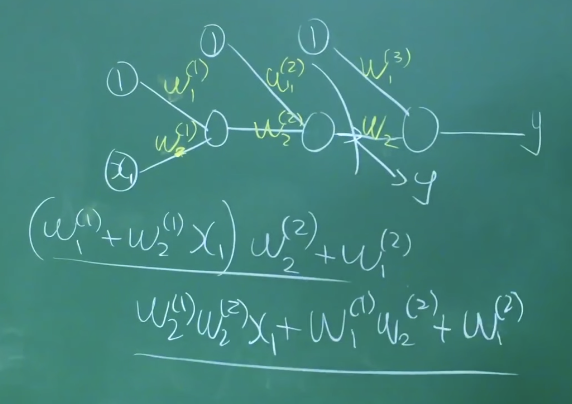 1 1 1
w₁⁽¹⁾ w₁⁽²⁾ w₁⁽³⁾
x₁ w₂⁽¹⁾ w₂⁽²⁾ w₂ y
y
(w₁⁽¹⁾+w₂⁽¹⁾x₁) w₂⁽²⁾+w₁⁽²⁾
w₂⁽¹⁾w₂⁽²⁾x₁+w₁⁽¹⁾w₂⁽²⁾+w₁⁽²⁾